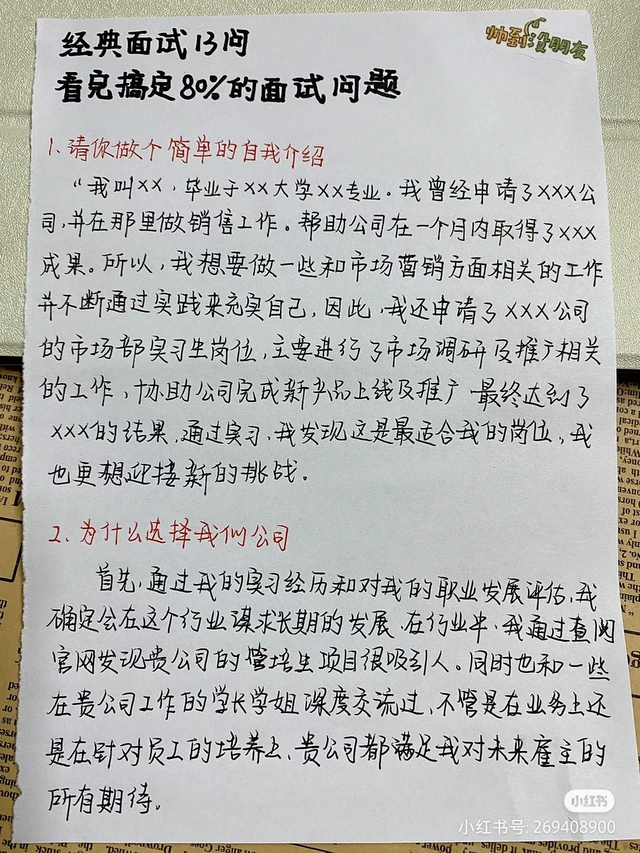 经典面试13问
帅到没朋友
看完搞定80%的面试问题
1、请你做个简单的自我介绍
“我叫××，毕业于××大学××专业。我曾经申请了×××公
司，并在那里做销售工作。帮助公司在一个月内取得了×××
成果。所以，我想要做一些和市场营销方面相关的工作
并不断通过实践来充实自己，因此，我还申请了×××公司
的市场部实习生岗位，主要进行了市场调研及推广相关
的工作，协助公司完成新产品上线及推广 最终达到了
×××的结果，通过实习，我发现这是最适合我的岗位，我
也更想迎接新的挑战。
2、为什么选择我们公司
首先，通过我的实习经历和对我的职业发展评估，我
确定会在这个行业谋求长期的发展 在行业中，我通过查阅
官网发现贵公司的管培生项目很吸引人。同时也和一些
在贵公司工作的学长学姐深度交流过，不管是在业务上还
是在针对员工的培养上、贵公司都满足我对未来雇主的
所有期待。
小红书
小红书号：269408900